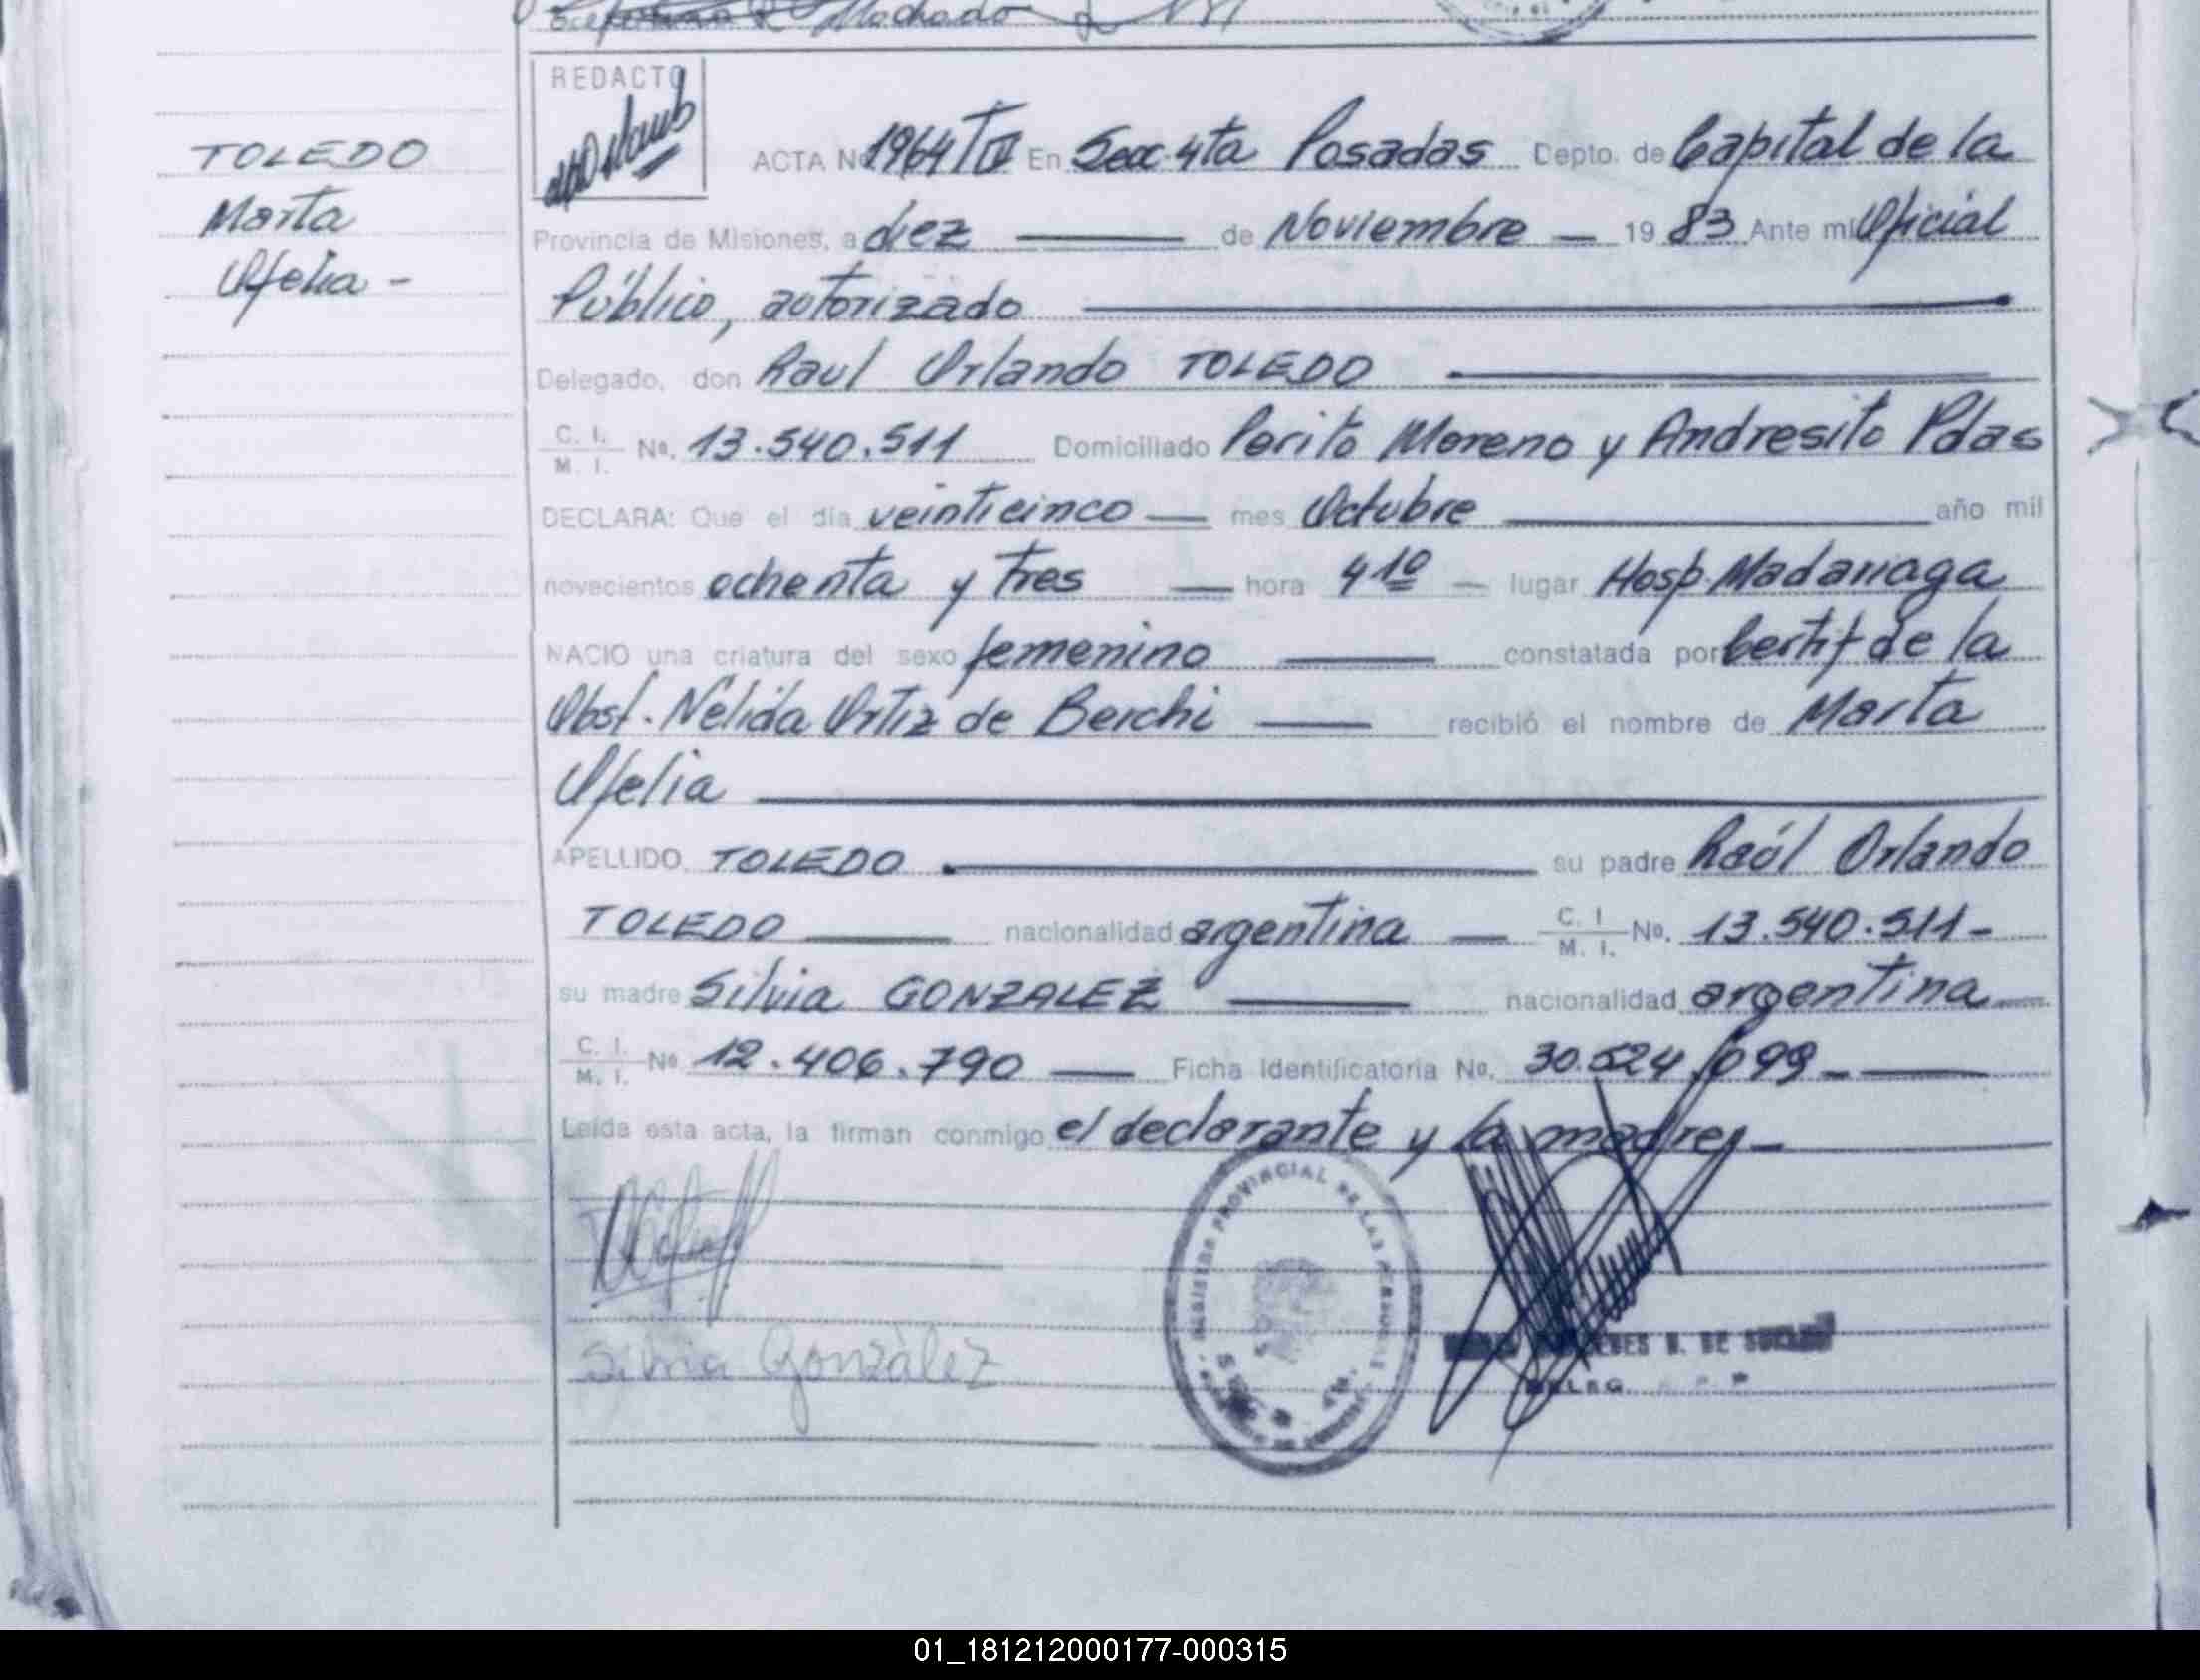 Machado
REDACTO
TOLEDO
Marta
Ofelia -
ACTA Nº 1964/TIV En Secc. 4ta Posadas Depto. de Capital de la
Provincia de Misiones, a diez de Noviembre 19 83 Ante mi Oficial
Público, autorizado
Delegado, don Raul Orlando TOLEDO
C. I. M. I. Nº. 13.540.511 Domiciliado Perito Moreno y Andresito Pdas
DECLARA: Que el día veinticinco mes Octubre año mil
novecientos ochenta y tres hora 4 10 lugar Hosp. Madariaga
NACIO una criatura del sexo femenino constatada por Certif de la
Obst. Nélida Ortiz de Berchi recibió el nombre de Marta
Ofelia
APELLIDO. TOLEDO su padre Raúl Orlando
TOLEDO nacionalidad argentina C. I. M. I. Nº. 13.540.511-
su madre Silvia GONZALEZ nacionalidad argentina
C. I. M. I. Nº 12.406.790 Ficha Identificatoria Nº. 30.524.099
Leída esta acta, la firman conmigo el declarante y la madre
REGISTRO PROVINCIAL DE LAS PERSONAS
Silvia Gonzàlez
DELEG.
01_181212000177-000315